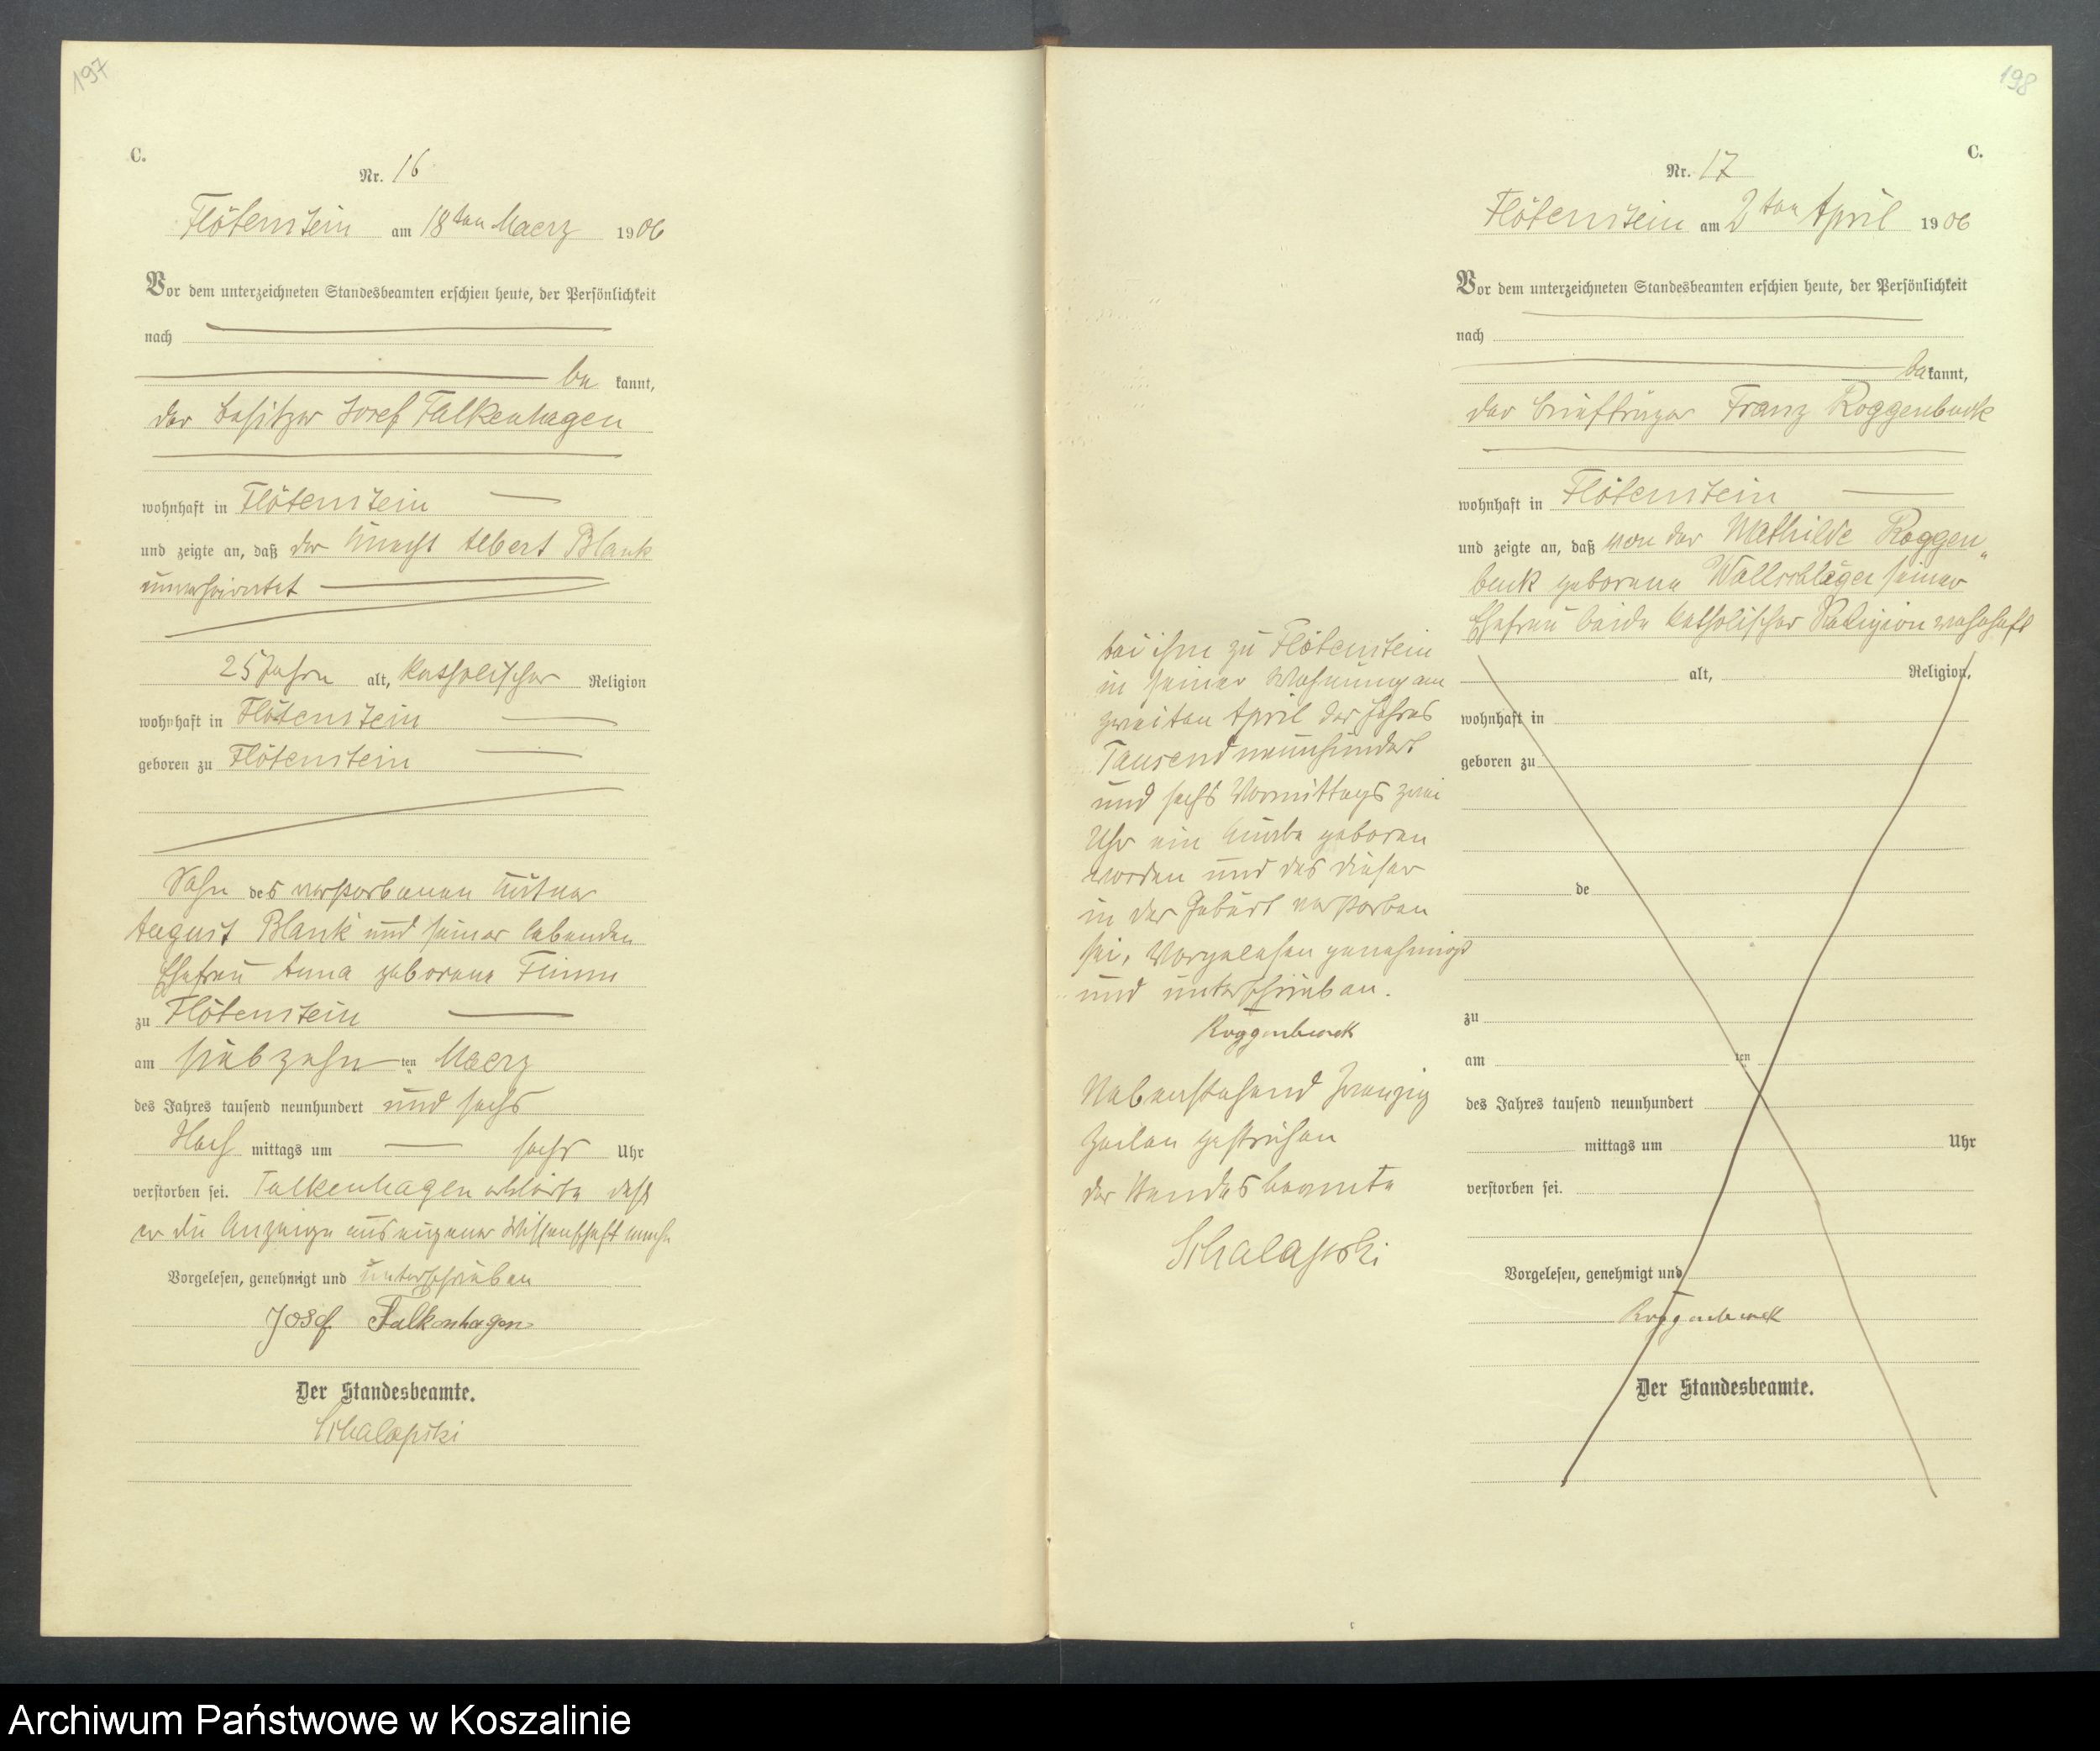 197
C.
Nr. 16
Flötenstein am 18ten Maerz 1906
Vor dem unterzeichneten Standesbeamten erschien heute, der Persönlichkeit
nach
be kannt,
der Besitzer Josef Falkenhagen
wohnhaft in Flötenstein
und zeigte an, daß der Knecht Albert Blank
unverheiratet
25 Jahre alt, katholischer Religion
wohnhaft in Flötenstein
geboren zu Flötenstein
Sohn des verstorbenen
August Blank und seiner lebenden
Ehefrau Anna geborene
zu Flötenstein
am siebzehn ten Maerz
des Jahres tausend neunhundert und sechs
Nach mittags um sechs Uhr
verstorben sei. Falkenhagen erklärte daß
er die Anzeige aus eigener Wissenschaft mache
Vorgelesen, genehmigt und unterschrieben
Josef Falkenhagen
Der Standesbeamte.
Schalapski
198
C.
Nr. 17
Flötenstein am 2ten April 1906
Vor dem unterzeichneten Standesbeamten erschien heute, der Persönlichkeit
nach
be kannt,
der Briefträger Franz Roggenbuck
wohnhaft in Flötenstein
und zeigte an, daß von der Mathilde Roggen„
buck geborene Wollschläger seiner
Ehefrau beide katholischer Religion wohnhaft
bei ihm zu Flötenstein
in seiner Wohnung am
zweiten April des Jahres
Tausend neunhundert
und sechs Vormittags zwei
Uhr ein Knabe geboren
worden und das dieser
in der Geburt verstorben
sei, Vorgelesen genehmigt
und unterschrieben.
Roggenbuck
Nebenstehend zwanzig
Zeilen gestrichen
der Standesbeamte
Schalapski
alt, Religion,
wohnhaft in
geboren zu
de
zu
am ten
des Jahres tausend neunhundert
mittags um Uhr
verstorben sei.
Vorgelesen, genehmigt und
Roggenbuck
Der Standesbeamte.
Archiwum Państwowe w Koszalinie